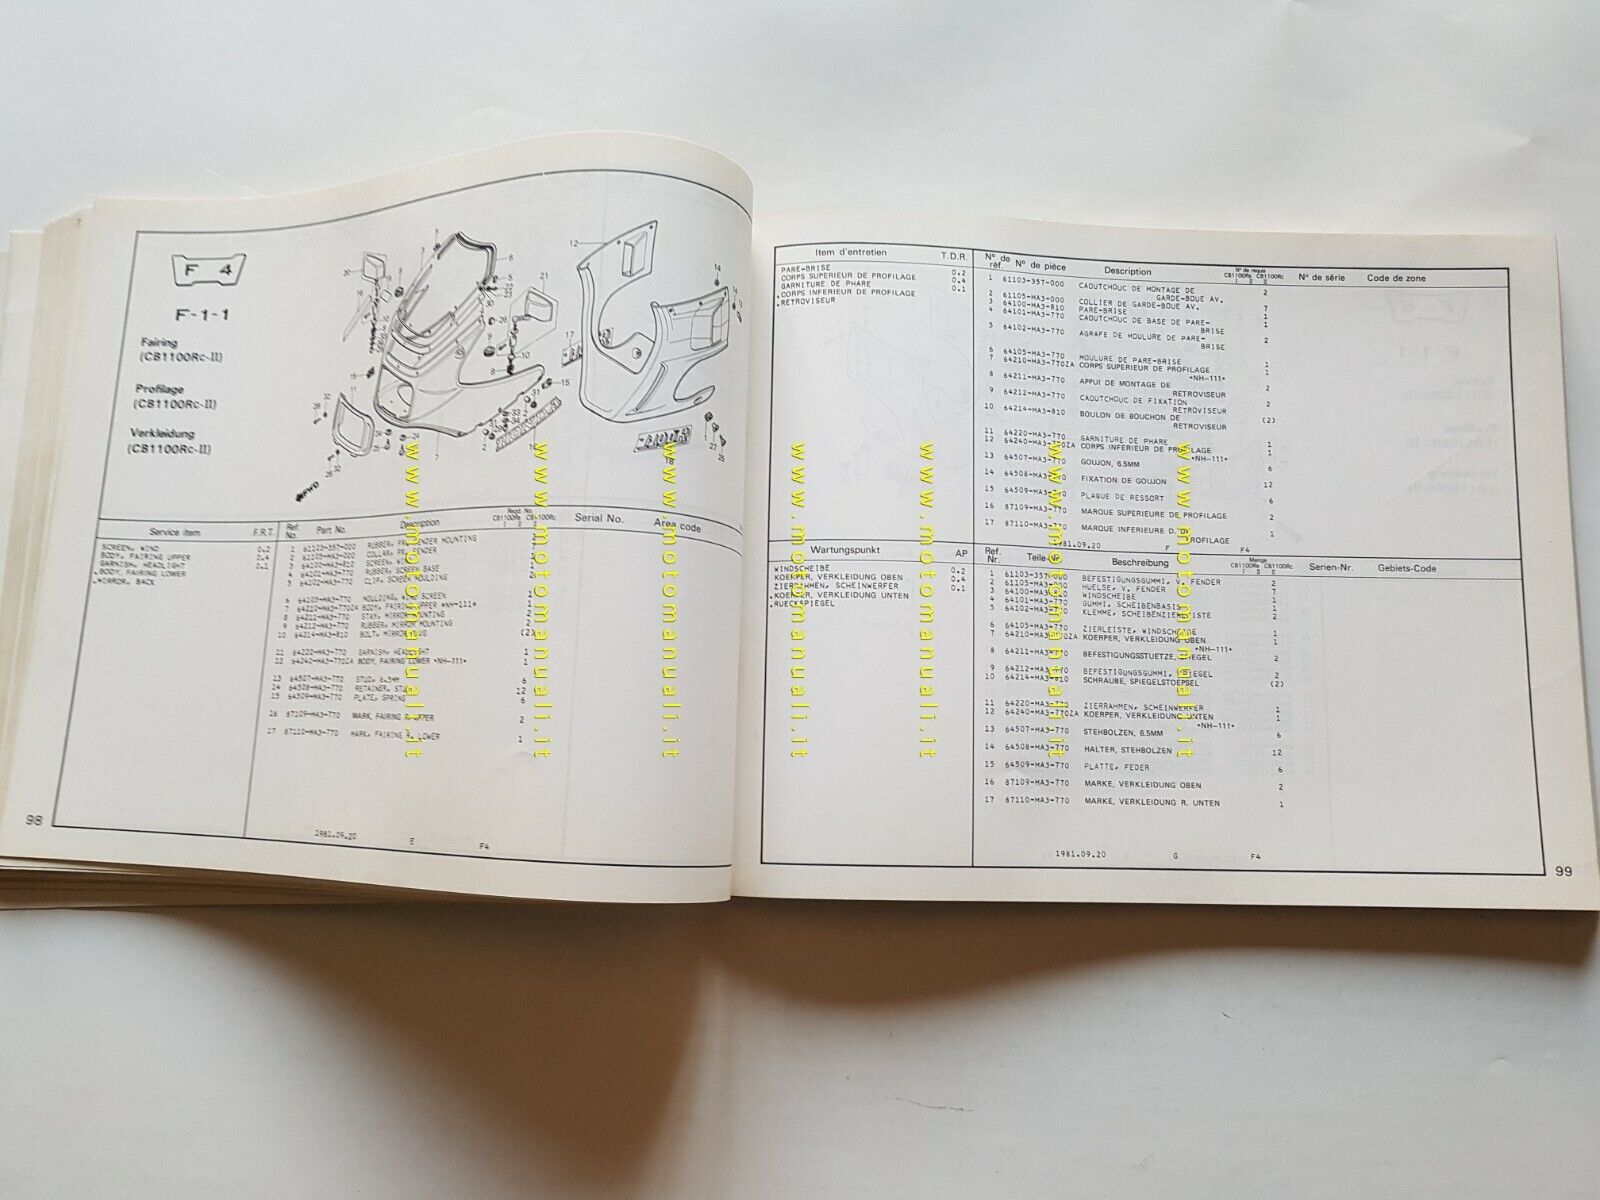 F 4
F-1-1
Fairing
(CB1100Rc-II)
Profilage
(CB1100Rc-II)
Verkleidung
(CB1100Rc-II)
FWD
Service item
F.R.T.
Ref. No.
Part No.
Description
Reqd. No.
CB1100RB CB1100Rc
Serial No.
Area code
SCREEN, WIND 0.2
BODY, FAIRING UPPER 0.4
GARNISH, HEADLIGHT 0.1
.BODY, FAIRING LOWER
.MIRROR, BACK
1 61103-357-000 RUBBER, FR. FENDER MOUNTING 2
2 61105-MA3-000 COLLAR, FR. FENDER
3 64100-MA3-810 SCREEN, 1
4 64101-MA3-770 RUBBER, SCREEN BASE 1
5 64102-MA3-770 CLIP, SCREEN MOULDING 2
6 64105-MA3-770 MOULDING, SCREEN 1
7 64210-MA3-770ZA BODY, FAIRING UPPER *NH-111* 1
8 64211-MA3-770 STAY, MIRROR MOUNTING 2
9 64212-MA3-770 RUBBER, MIRROR MOUNTING 2
10 64214-MA3-810 BOLT, MIRROR PLUG (2)
11 64220-MA3-770 GARNISH, HEADLIGHT 1
12 64240-MA3-770ZA BODY, FAIRING LOWER *NH-111* 1
13 64507-MA3-770 STUD, 6.5MM 6
14 64508-MA3-770 RETAINER, STUD 12
15 64509-MA3-770 PLATE, SPRING 6
16 87109-MA3-770 MARK, FAIRING UPPER 2
17 87110-MA3-770 MARK, FAIRING R. LOWER 1
1981.09.20 E F4
98
Item d'entretien
T.D.R.
N° de réf.
N° de pièce
Description
N° de requis
CB1100RB CB1100Rc
N° de série
Code de zone
PARE-BRISE 0.2
CORPS SUPERIEUR DE PROFILAGE 0.4
GARNITURE DE PHARE 0.1
.CORPS INFERIEUR DE PROFILAGE
.RETROVISEUR
1 61103-357-000 CAOUTCHOUC DE MONTAGE DE 2
GARDE-BOUE AV.
2 61105-MA3-000 COLLIER DE GARDE-BOUE AV. 7
3 64100-MA3-810 PARE-BRISE 1
4 64101-MA3-770 CAOUTCHOUC DE BASE DE PARE- 1
BRISE
5 64102-MA3-770 AGRAFE DE MOULURE DE PARE- 2
BRISE
6 64105-MA3-770 MOULURE DE PARE-BRISE 1
7 64210-MA3-770ZA CORPS SUPERIEUR DE PROFILAGE 1
*NH-111*
8 64211-MA3-770 APPUI DE MONTAGE DE 2
RETROVISEUR
9 64212-MA3-770 CAOUTCHOUC DE FIXATION 2
RETROVISEUR
10 64214-MA3-810 BOULON DE BOUCHON DE (2)
RETROVISEUR
11 64220-MA3-770 GARNITURE DE PHARE 1
12 64240-MA3-770ZA CORPS INFERIEUR DE PROFILAGE 1
*NH-111*
13 64507-MA3-770 GOUJON, 6.5MM 6
14 64508-MA3-770 FIXATION DE GOUJON 12
15 64509-MA3-770 PLAQUE DE RESSORT 6
16 87109-MA3-770 MARQUE SUPERIEURE DE PROFILAGE 2
17 87110-MA3-770 MARQUE INFERIEURE D. DE 1
PROFILAGE
1981.09.20 F F4
Wartungspunkt
AP
Ref. Nr.
Teile-Nr.
Beschreibung
Menge
CB1100RB CB1100Rc
Serien-Nr.
Gebiets-Code
WINDSCHEIBE 0.2
KOERPER, VERKLEIDUNG OBEN 0.4
ZIERRAHMEN, SCHEINWERFER 0.1
.KOERPER, VERKLEIDUNG UNTEN
.RUECKSPIEGEL
1 61103-357-000 BEFESTIGUNGSGUMMI, V. FENDER 2
2 61105-MA3-000 HUELSE, V. FENDER 7
3 64100-MA3-810 WINDSCHEIBE 1
4 64101-MA3-770 GUMMI, SCHEIBENBASIS 1
5 64102-MA3-770 KLEMME, SCHEIBENZIERLEISTE 2
6 64105-MA3-770 ZIERLEISTE, WINDSCHEIBE 1
7 64210-MA3-770ZA KOERPER, VERKLEIDUNG OBEN 1
*NH-111*
8 64211-MA3-770 BEFESTIGUNGSSTUETZE, SPIEGEL 2
9 64212-MA3-770 BEFESTIGUNGSGUMMI, SPIEGEL 2
10 64214-MA3-810 SCHRAUBE, SPIEGELSTOEPSEL (2)
11 64220-MA3-770 ZIERRAHMEN, SCHEINWERFER 1
12 64240-MA3-770ZA KOERPER, VERKLEIDUNG UNTEN 1
*NH-111*
13 64507-MA3-770 STEHBOLZEN, 6.5MM 6
14 64508-MA3-770 HALTER, STEHBOLZEN 12
15 64509-MA3-770 PLATTE, FEDER 6
16 87109-MA3-770 MARKE, VERKLEIDUNG OBEN 2
17 87110-MA3-770 MARKE, VERKLEIDUNG R. UNTEN 1
1981.09.20 G F4
99
www.motomanuali.it
www.motomanuali.it
www.motomanuali.it
www.motomanuali.it
www.motomanuali.it
www.motomanuali.it
www.motomanuali.it